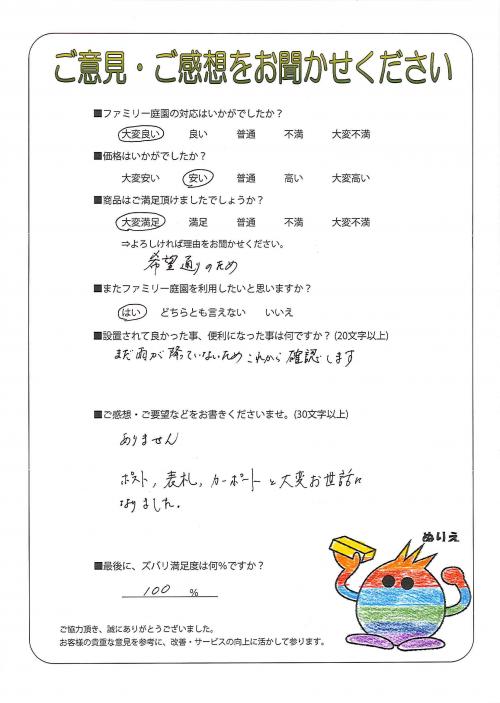 ご意見・ご感想をお聞かせください
■ファミリー庭園の対応はいかがでしたか？
大変良い 良い 普通 不満 大変不満
■価格はいかがでしたか？
大変安い 安い 普通 高い 大変高い
■商品はご満足頂けましたでしょうか？
大変満足 満足 普通 不満 大変不満
⇒よろしければ理由をお聞かせください。
希望通りのため
■またファミリー庭園を利用したいと思いますか？
はい どちらとも言えない いいえ
■設置されて良かった事、便利になった事は何ですか？(20文字以上)
まだ雨が降っていないためこれから確認します
■ご感想・ご要望などをお書きくださいませ。(30文字以上)
ありません
ポスト，表札，カーポートと大変お世話に
なりました．
ぬりえ
■最後に、ズバリ満足度は何%ですか？
100 %
ご協力頂き、誠にありがとうございました。
お客様の貴重な意見を参考に、改善・サービスの向上に活かして参ります。